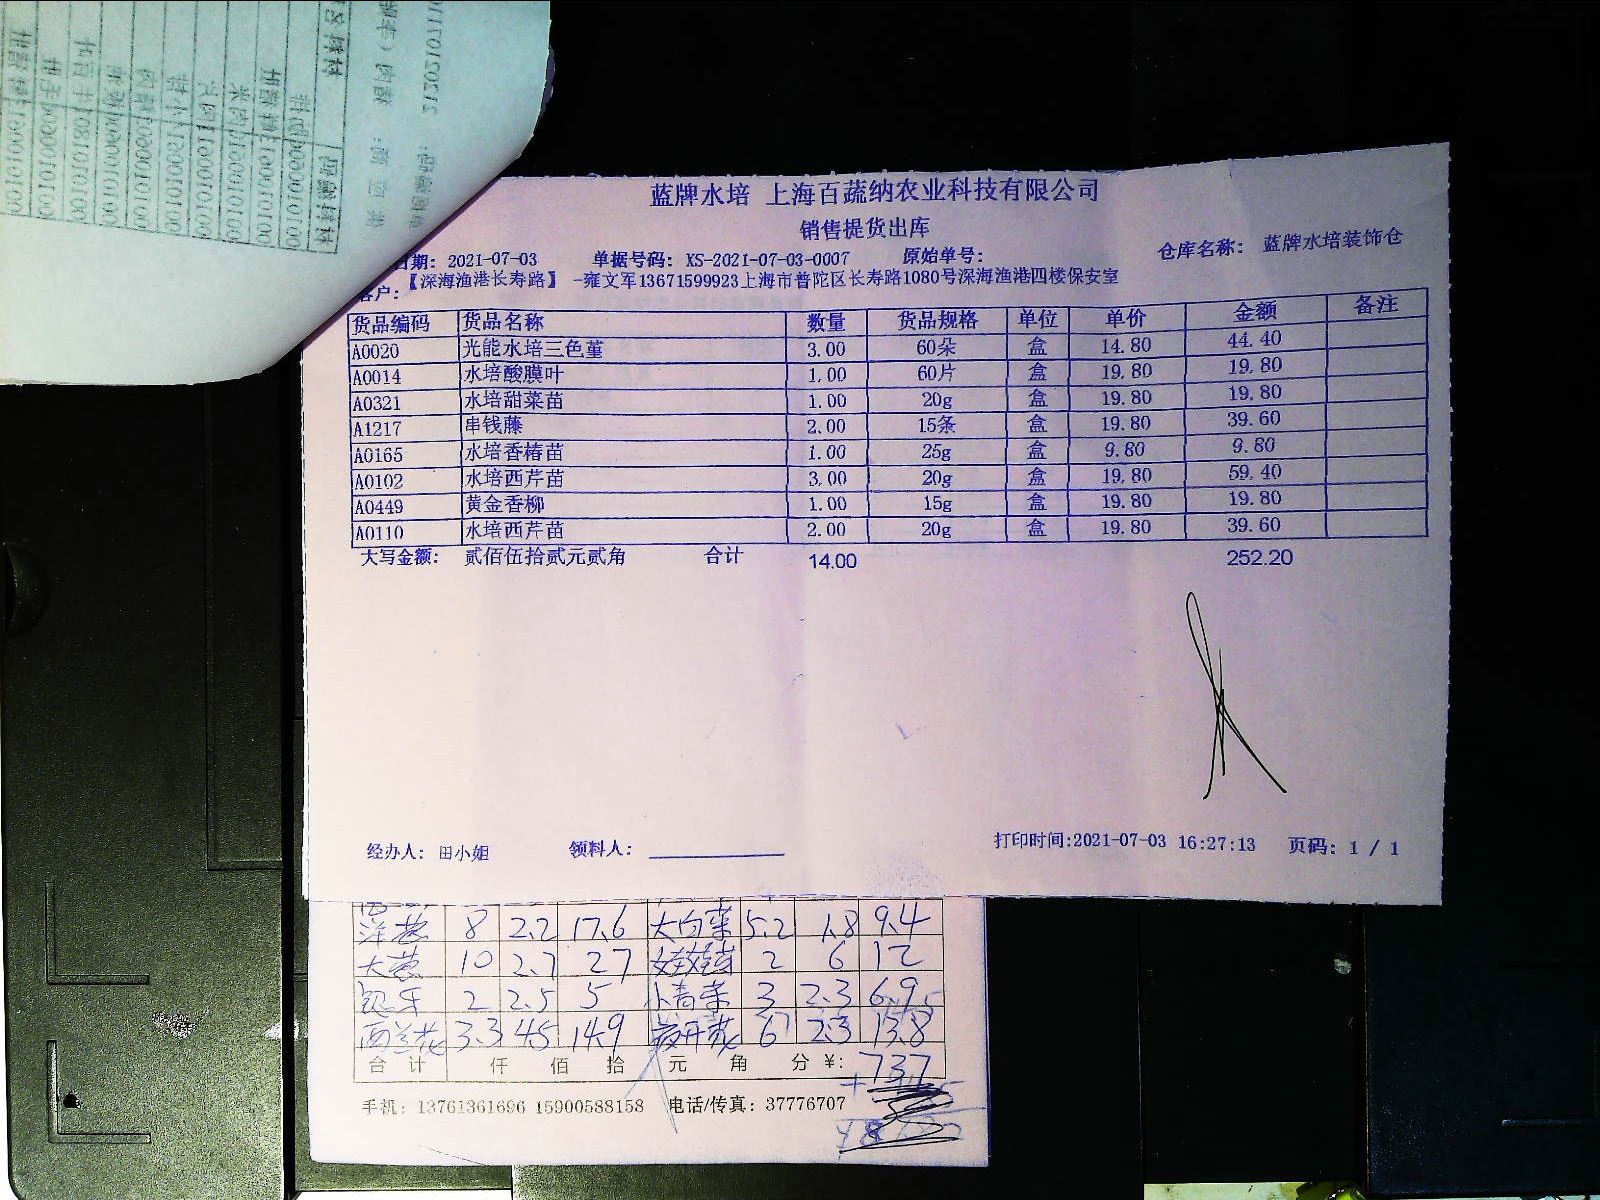 蓝牌水培 上海百蔬纳农业科技有限公司
销售提货出库
日期: 2021-07-03 单据号码: XS-2021-07-03-0007 原始单号: 仓库名称: 蓝牌水培装饰仓
客户: 【深海渔港长寿路】 -雍文军13671599923上海市普陀区长寿路1080号深海渔港四楼保安室
货品编码 货品名称 数量 货品规格 单位 单价 金额 备注
A0020 光能水培三色堇 3.00 60朵 盒 14.80 44.40
A0014 水培酸膜叶 1.00 60片 盒 19.80 19.80
A0321 水培甜菜苗 1.00 20g 盒 19.80 19.80
A1217 串钱藤 2.00 15条 盒 19.80 39.60
A0165 水培香椿苗 1.00 25g 盒 9.80 9.80
A0102 水培西芹苗 3.00 20g 盒 19.80 59.40
A0449 黄金香柳 1.00 15g 盒 19.80 19.80
A0110 水培西芹苗 2.00 20g 盒 19.80 39.60
大写金额: 贰佰伍拾贰元贰角 合计 14.00 252.20
经办人: 田小姐 领料人: 打印时间:2021-07-03 16:27:13 页码: 1 / 1
洋葱 8 2.2 17.6 大白菜 5.2 1.8 9.4
大葱 10 2.7 27 娃娃菜 2 6 12
2 2.5 5 小青菜 3 2.3 6.9
西兰花 3.3 4.5 14.9 6 2.3 13.8
合计 仟 佰 拾 元 角 分 ¥: 737
手机: 13761361696 15900588158 电话/传真: 37776707